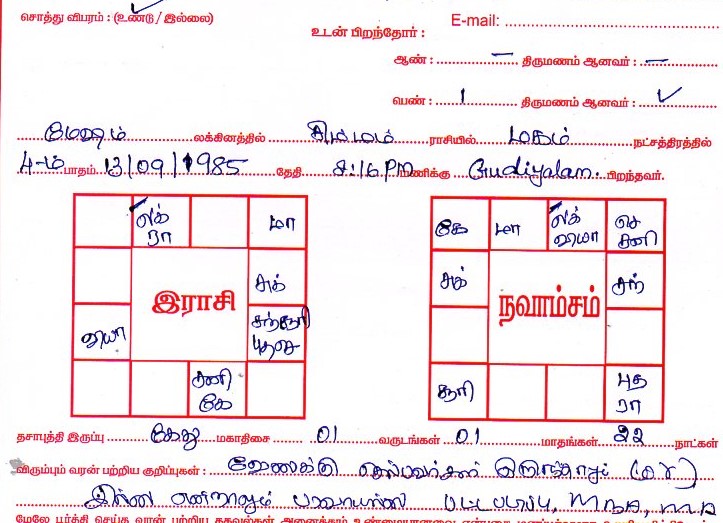 சொத்து விபரம் : (உண்டு / இல்லை)
E-mail:
உடன் பிறந்தோர் :
ஆண் : — திருமணம் ஆனவர் : —
பெண் : 1 திருமணம் ஆனவர் : ✓
மேஷம் லக்கினத்தில் சிம்மம் ராசியில் மகம் நட்சத்திரத்தில்
4-ம் பாதம் 13/09/1985 தேதி 8:16 PM மணிக்கு Gudiyalam பிறந்தவர்.
லக் ரா மா
சுக்
இராசி
சந் சூரி
புத செ
வியா
சனி
கே
கே மா லக் வியா செ சனி
சுக் சந்
நவாம்சம்
சூரி புத ரா
தசாபுத்தி இருப்பு கேது மகாதிசை 01 வருடங்கள் 01 மாதங்கள் 22 நாட்கள்
விரும்பும் வரன் பற்றிய குறிப்புகள் : வேலைக்கு செல்பவர்களாக இருந்தாலும் (or)
இல்லை என்றாலும் பரவாயில்லை பட்டபடிப்பு, M.B.A, M.A
மேலே பூர்த்தி செய்த வரன் பற்றிய தகவல்கள் அனைத்தும் உண்மையானவை